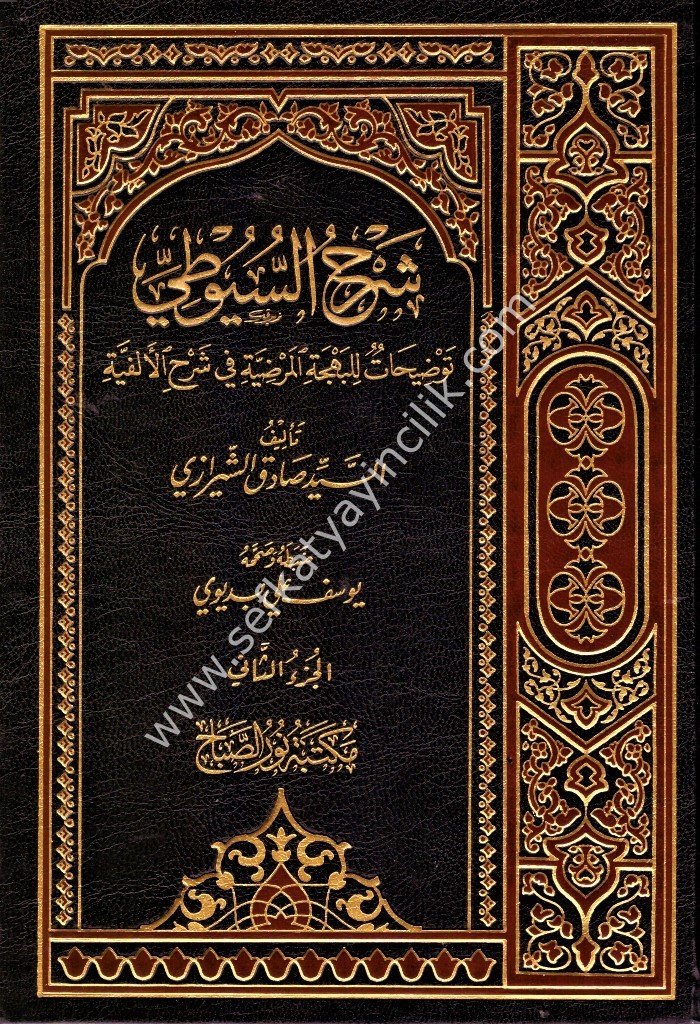 شَرْحُ السُّيُوطِيِّ
تَوْضِيحَاتٌ لِلْبَهْجَةِ الْمَرْضِيَّةِ فِي شَرْحِ الْأَلْفِيَّةِ
تَأْلِيفُ
السَّيِّد صَادِق الشِّيرَازِي
ضَبَطَهُ وَصَحَّحَهُ
يوسف علي بديوي
الجُزْءُ الثَّانِي
مَكْتَبَةُ نُورِ الصَّبَاحِ
www.serkatyayincilik.com